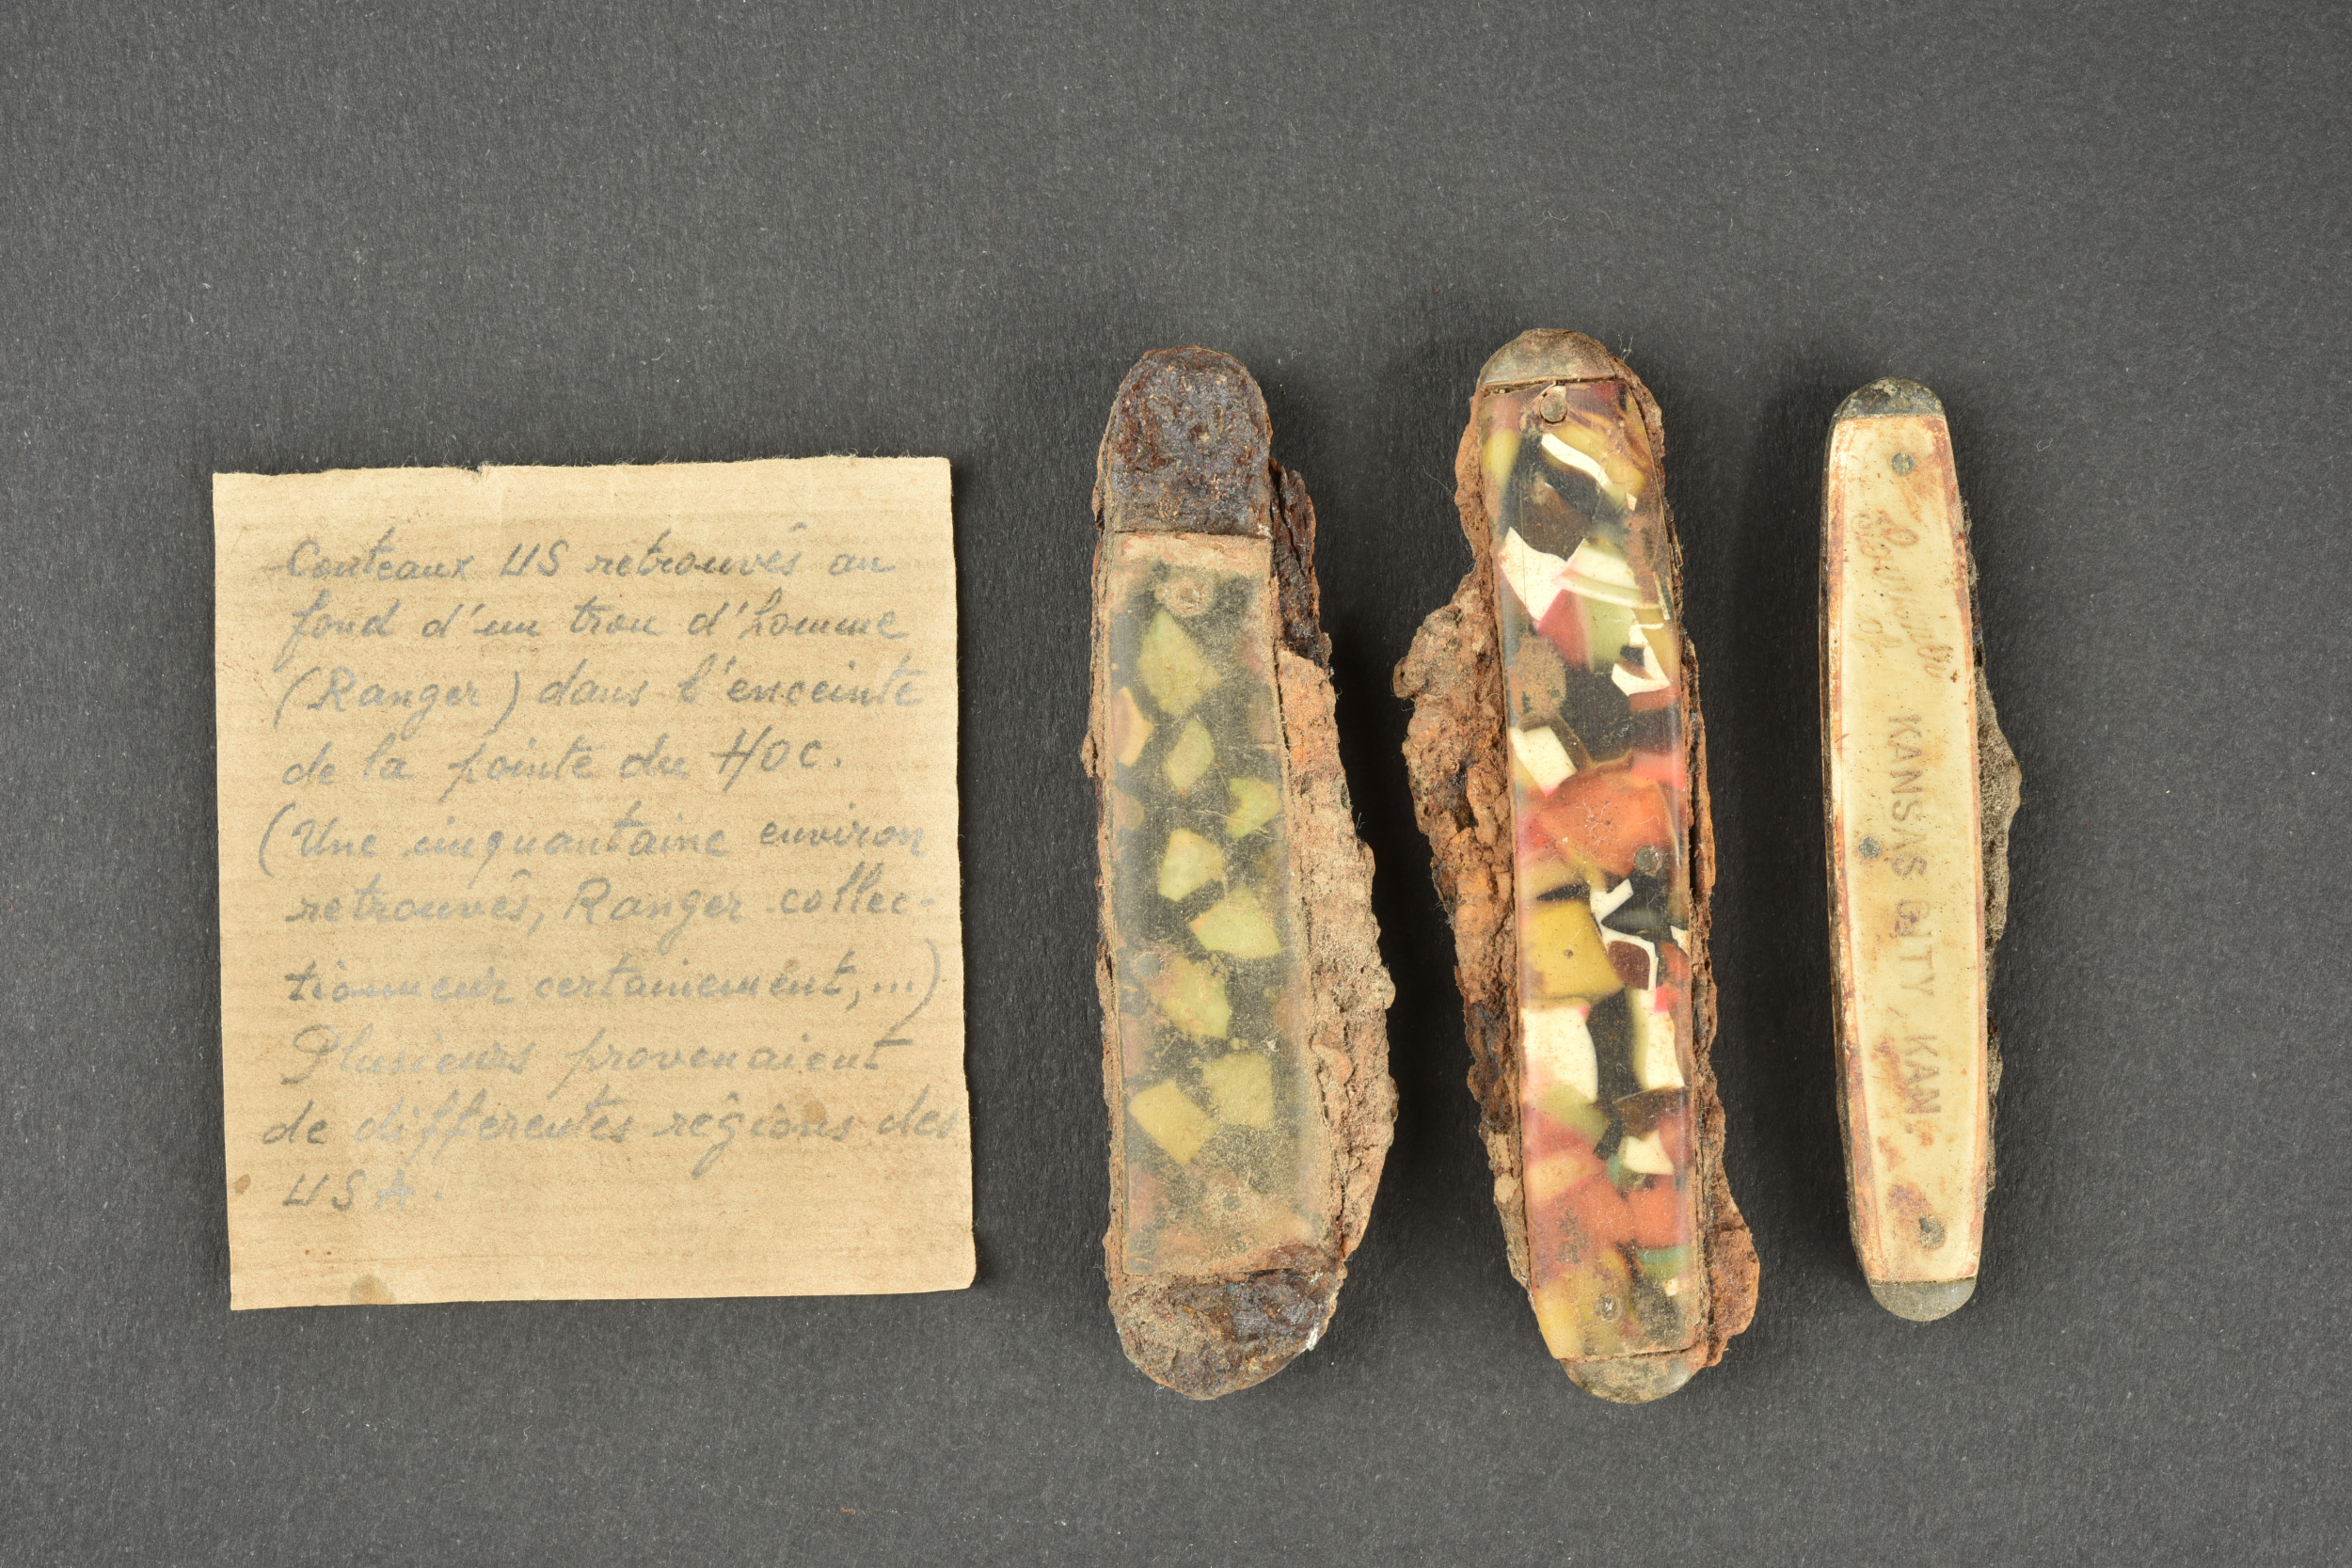 Couteaux US retrouvés au
fond d'un trou d'homme
(Ranger) dans l'enceinte
de la pointe du HOC.
(Une cinquantaine environ
retrouvés, Ranger collec-
tionneur certainement,...)
Plusieurs provenaient
de différentes régions des
USA.
Souvenir
of
KANSAS CITY, KAN.